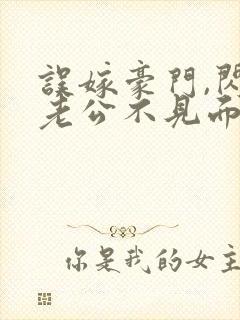 誤嫁豪門,閃
老公不見而
你是我的女主